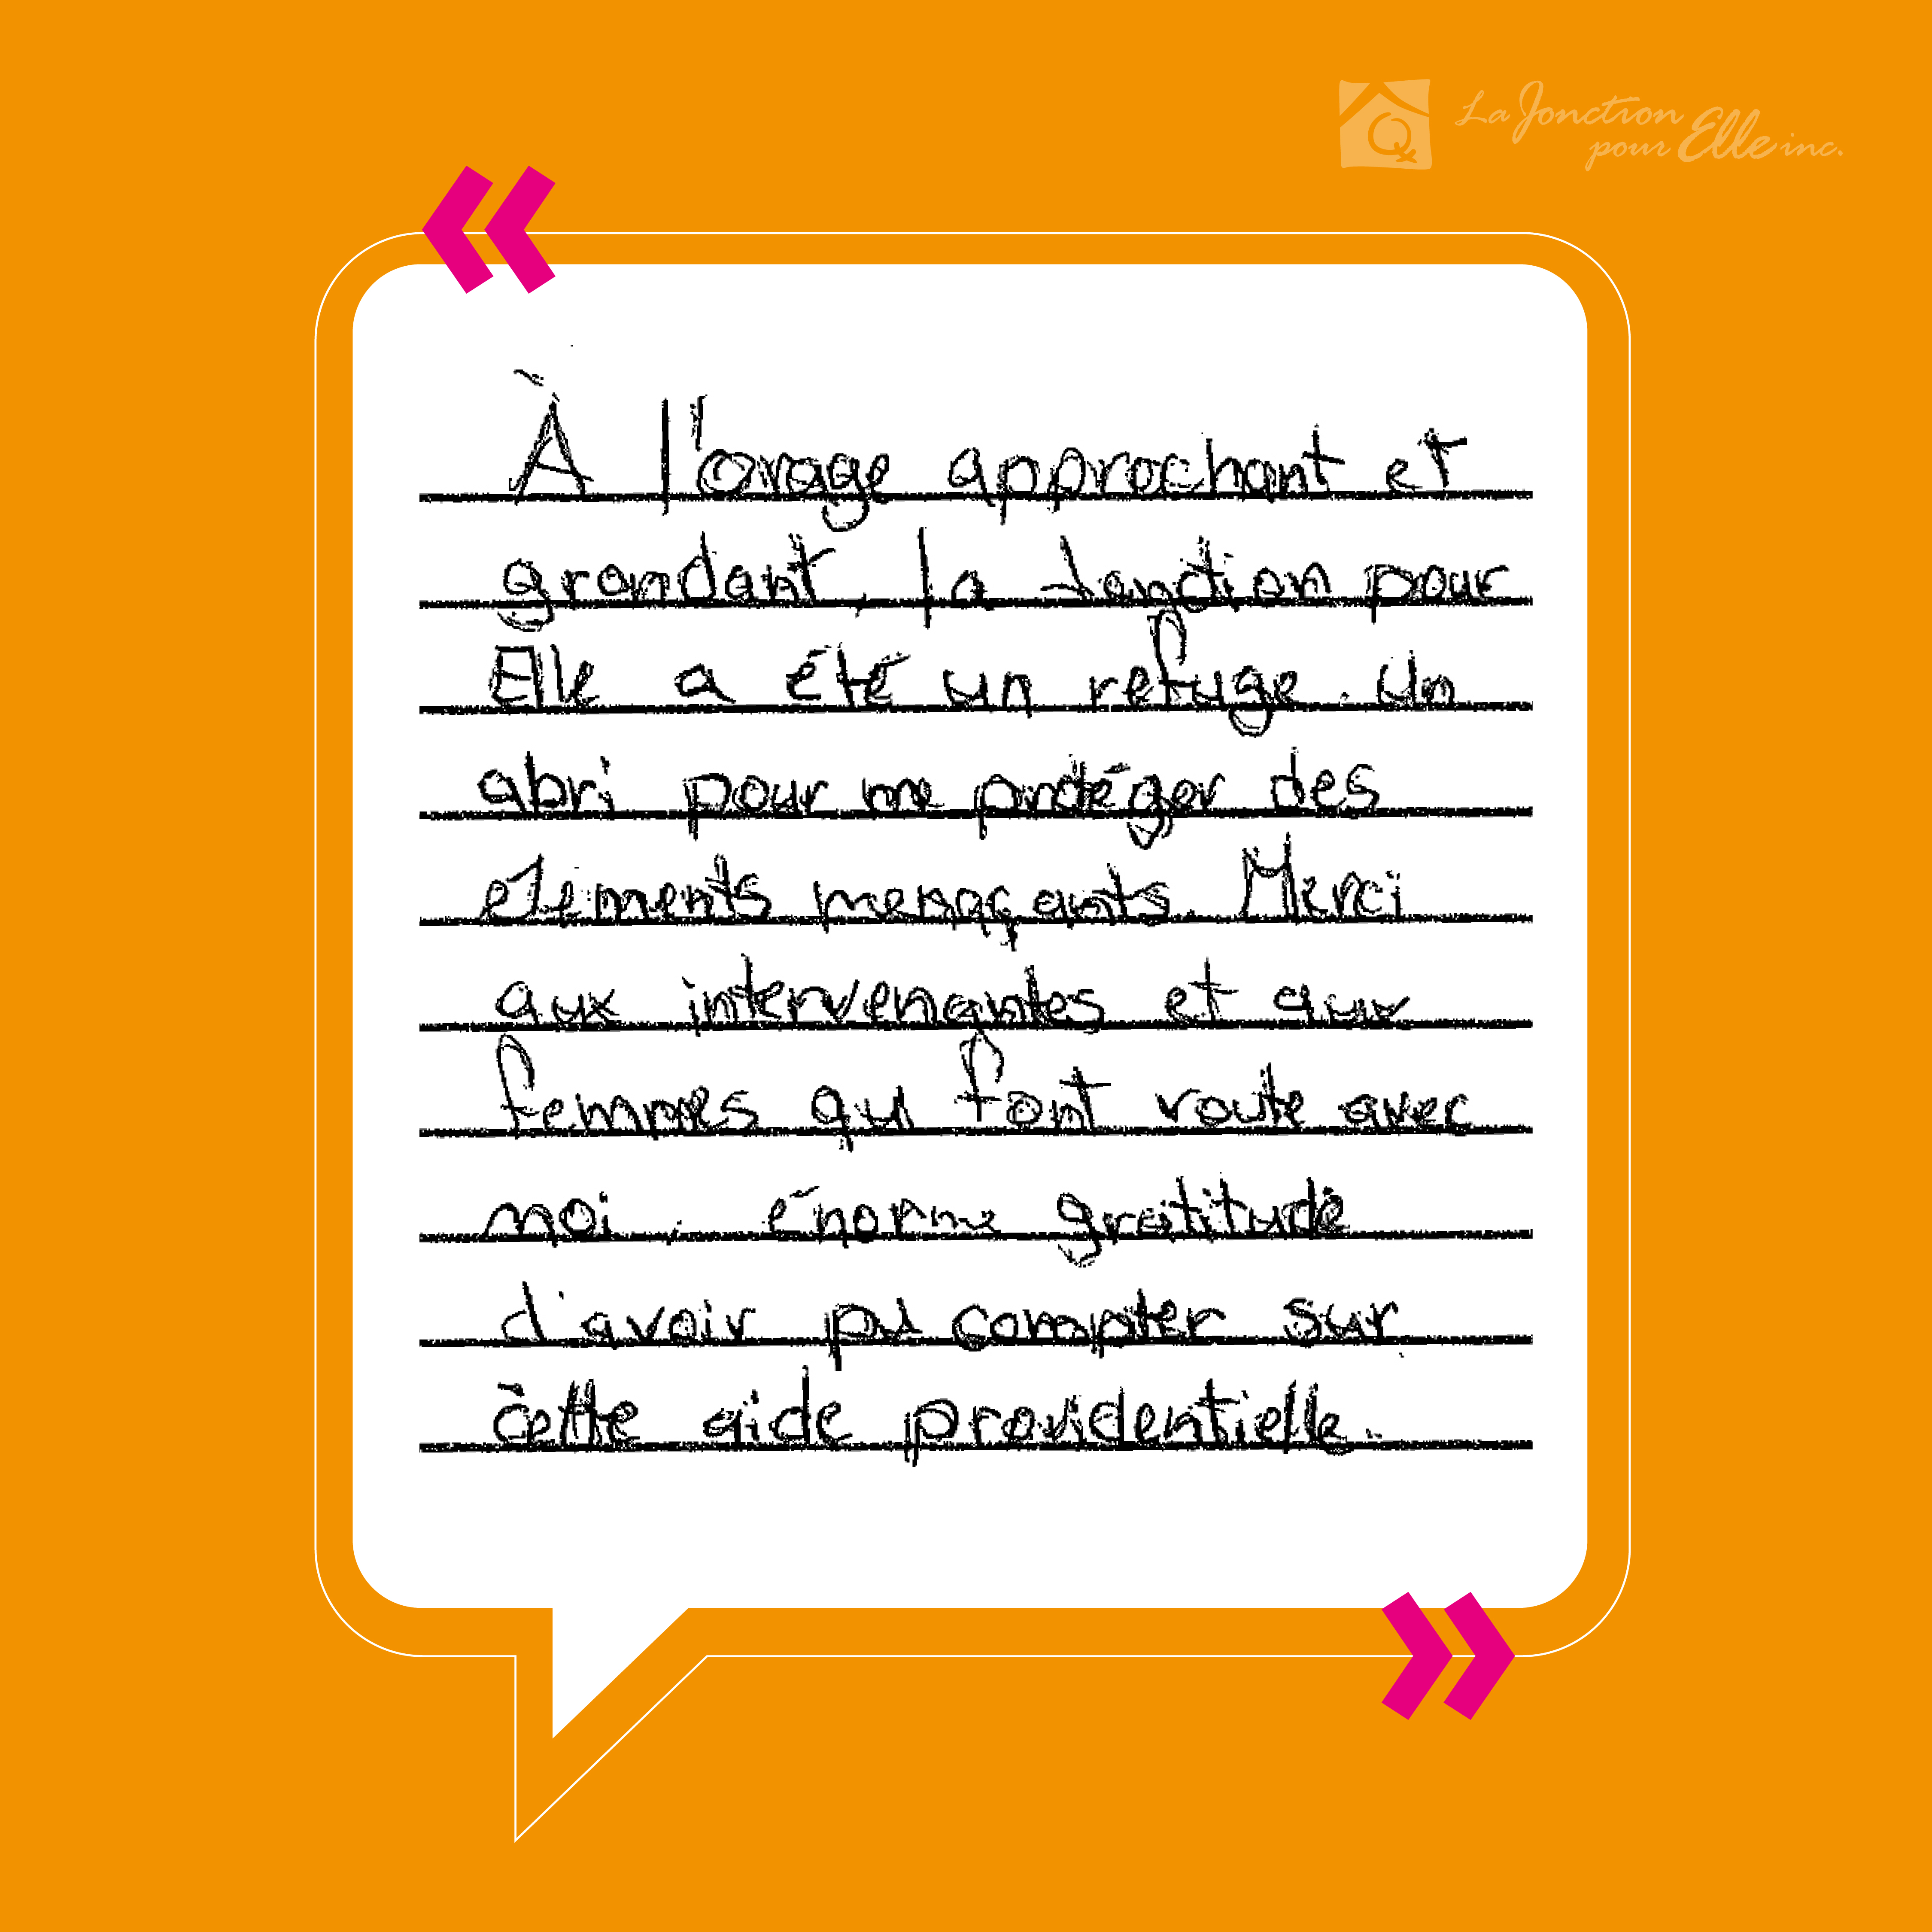 La Jonction
pour Elle inc.
«
À l'orage approchant et
grondant, la Jonction pour
Elle a été un refuge. Un
abri pour me protéger des
eléments menaçants. Merci
aux intervenantes et aux
femmes qui font route avec
moi, énorme gratitude
d'avoir pu compter sur
cette aide providentielle.
»